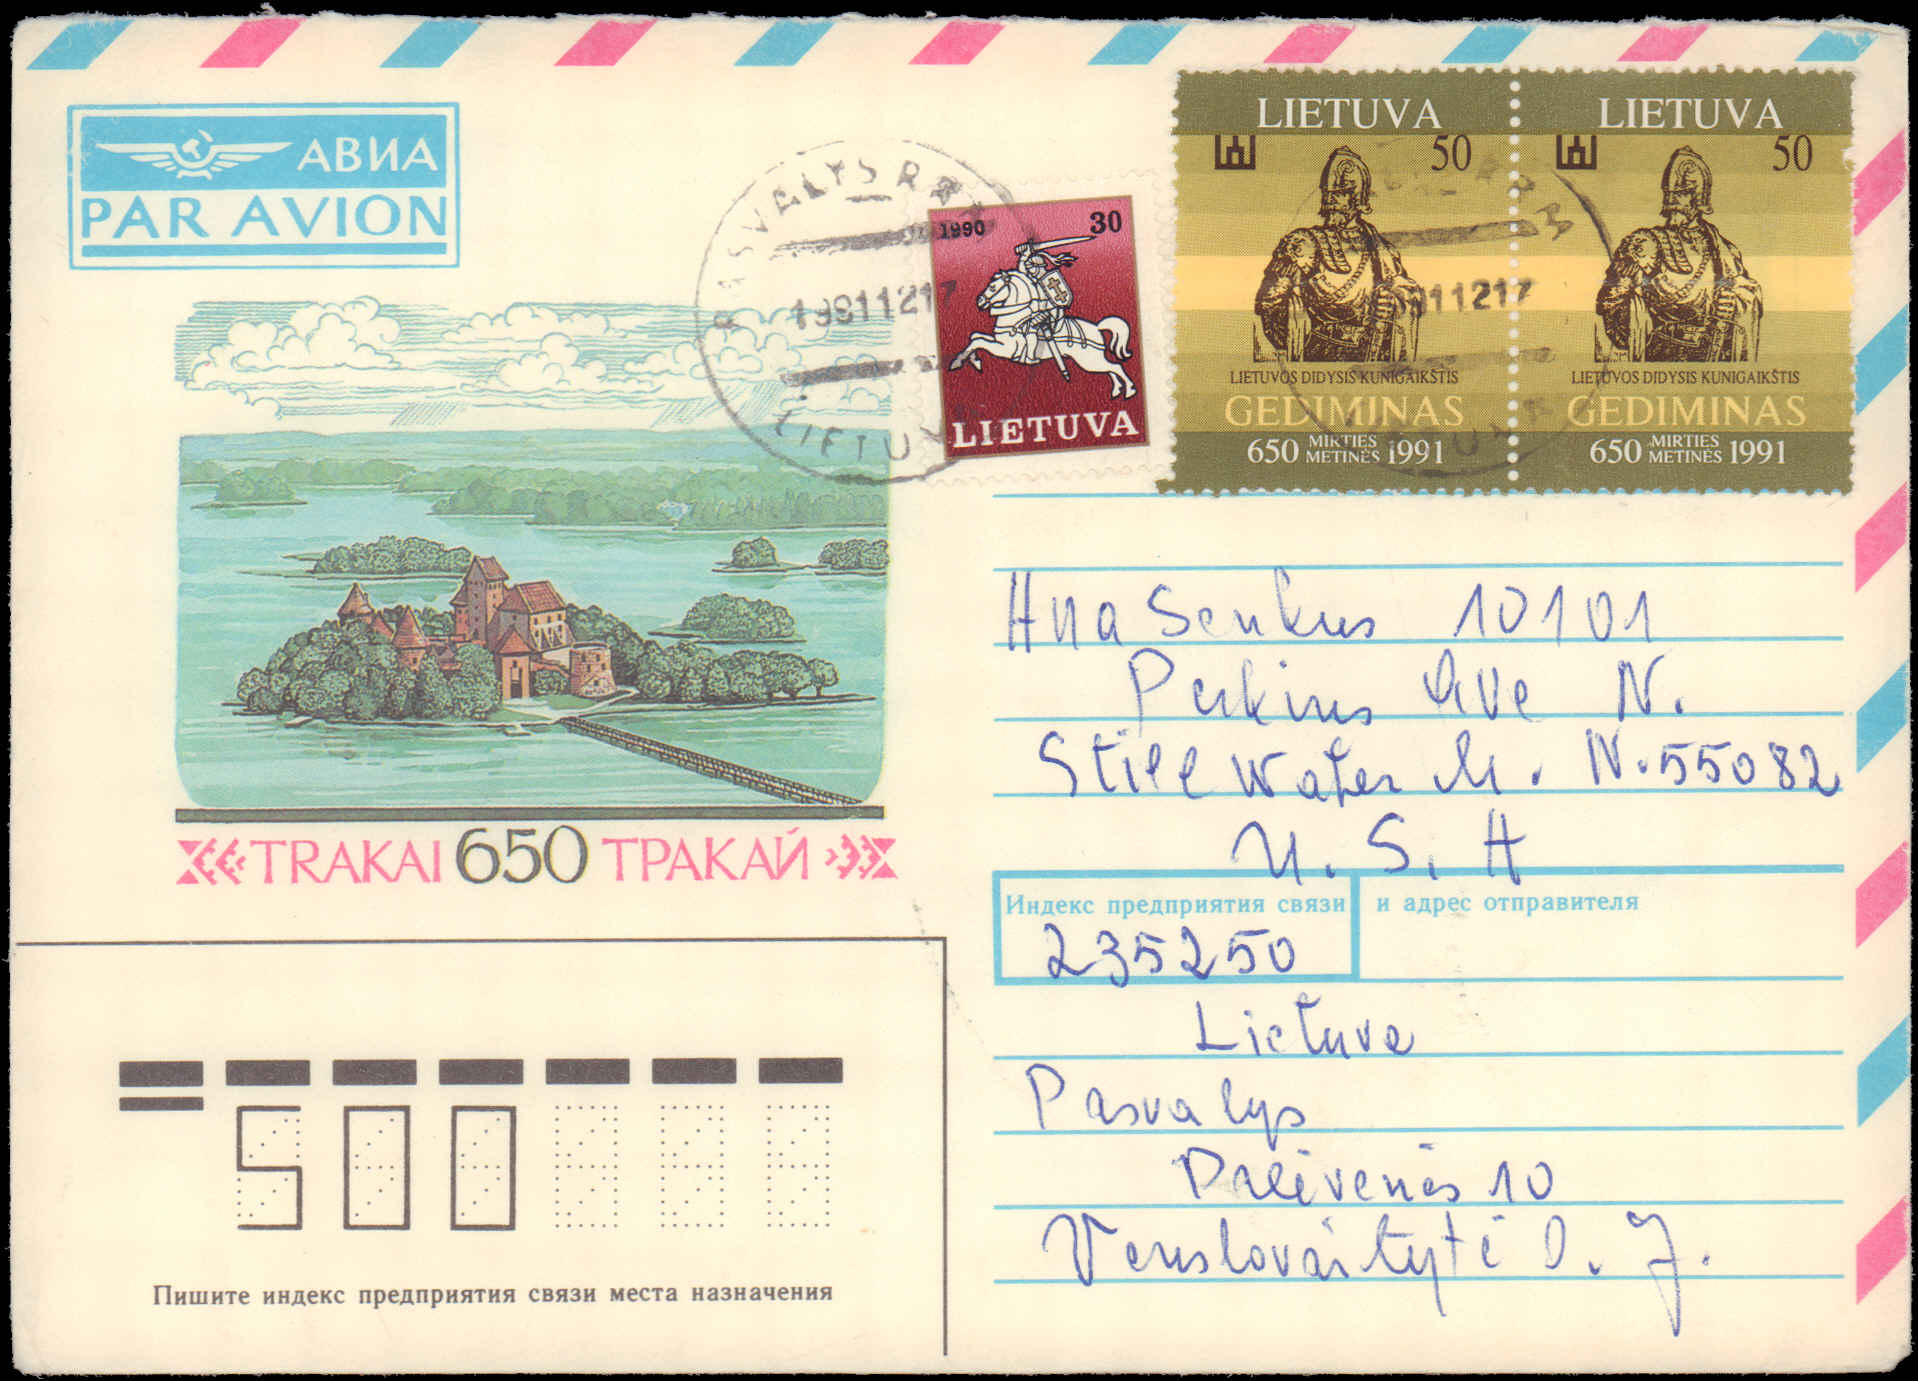 АВИА
PAR AVION
1990 30
LIETUVA
LIETUVA
50
LIETUVOS DIDYSIS KUNIGAIKŠTIS
GEDIMINAS
650 MIRTIES METINĖS 1991
LIETUVA
50
LIETUVOS DIDYSIS KUNIGAIKŠTIS
GEDIMINAS
650 MIRTIES METINĖS 1991
PASVALYS
LIETUVA
TRAKAI 650 ТРАКАЙ
Ana Senkus 10101
Perkins Ave N.
Still Water M. N. 55082
U. S. A
Индекс предприятия связи и адрес отправителя
235250
Lietuva
Pasvalys
Palėvenės 10
O. J.
500
Пишите индекс предприятия связи места назначения